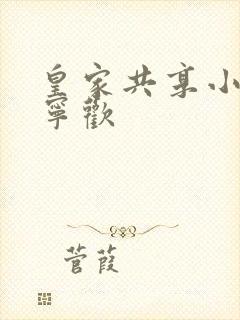 皇家共享小
寧歡
菅葭